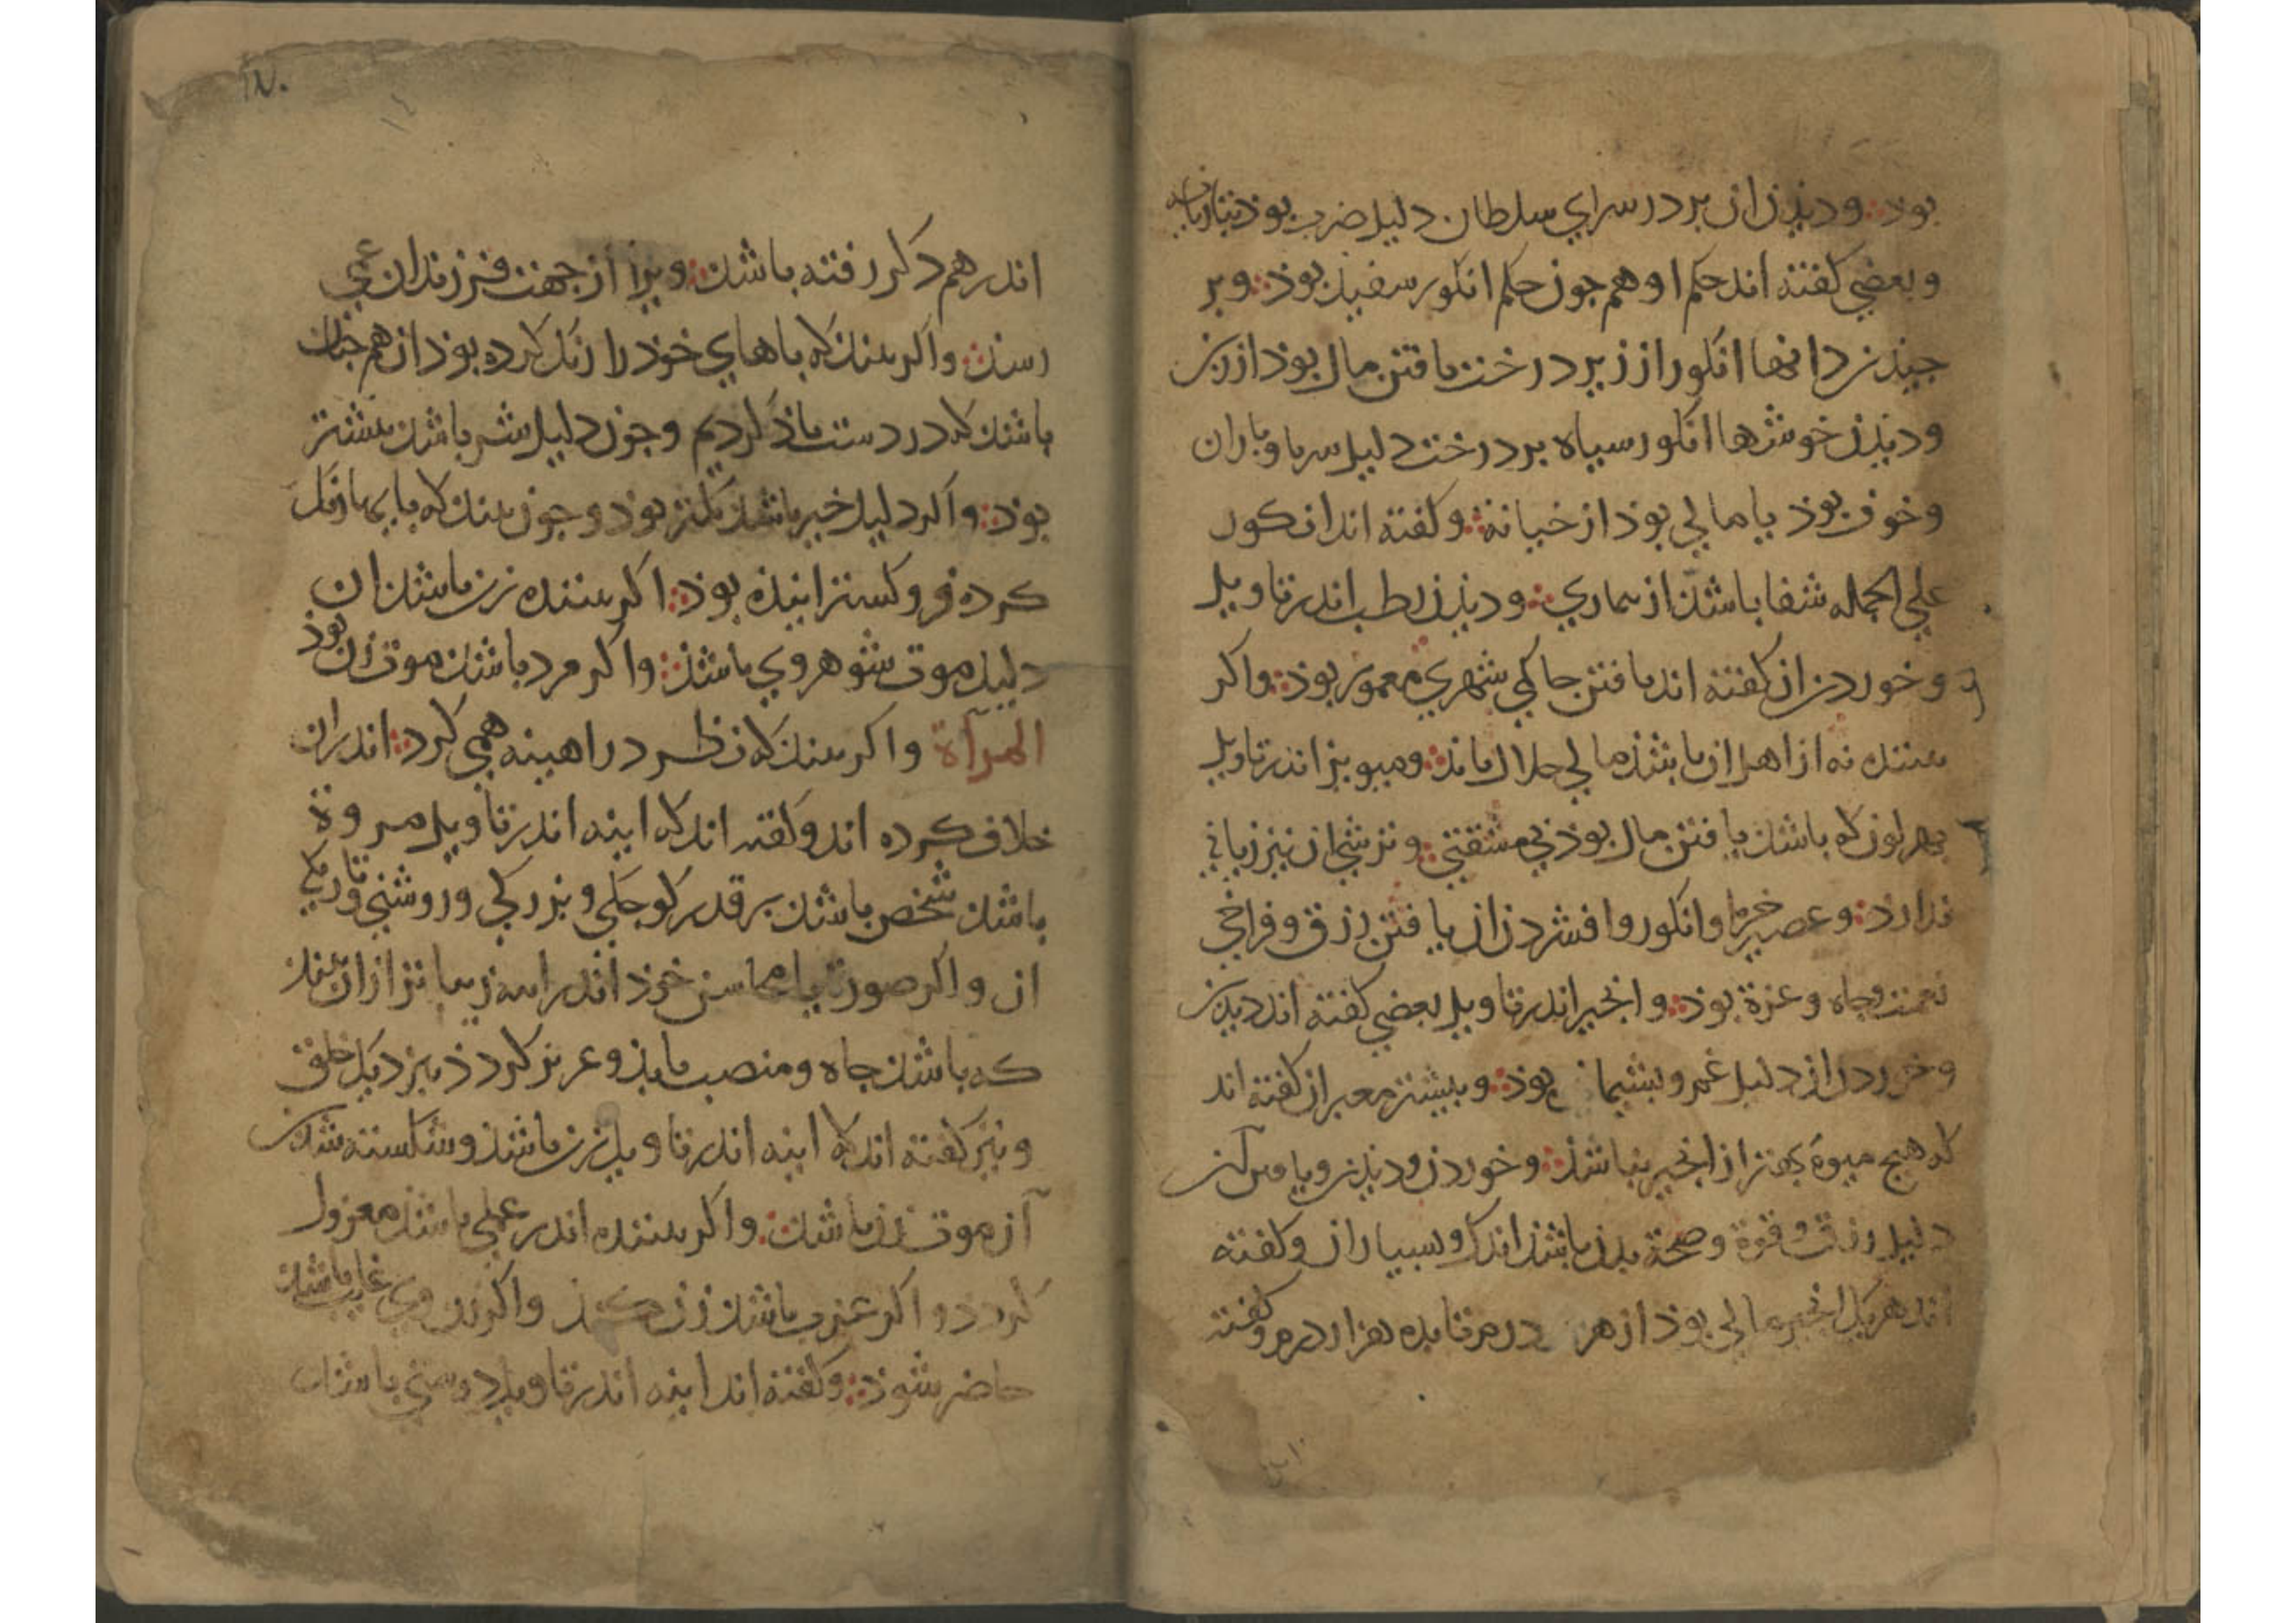 بوذ ودیذن ان بر در سرای سلطان دلیل ضرب بوذ بتازیانه
وبعضی کفته اند حکم او هم جون حکم انکور سفید بوذ وبر
جیذن دانها انکور از زیر درخت یافتن مال بوذ از زن
ودیذن خوشها انکور سیاه بر درخت دلیل سرما وباران
وخوف بوذ یا مالی بوذ از خیانة وکفته اند انکور
علی الجمله شفا باشد از بیماری ودیذن رطب اندر تاویل
وخوردن ان کفته اند یافتن حاکمی شهری معمور بوذ واکر
بیننده نه از اهل ان باشذ مالی حلال یابذ ومیویز اندر تاویل
بهر لون که باشد یافتن مال بوذ بی مشقتی وترشی ان نیز زیانی
ندارد وعصیر خرما وانکور وافشردن ان یافتن رزق وفراخی
نعمت وجاه وعزة بوذ وانجیر اندر تاویل بعضی کفته اند دیذن
وخوردن ان دلیل غم وبشیمانی بوذ وبیشتر معبران کفته اند
که هیج میوۀ بهتر از انجیر نباشذ وخوردن ودیذن ویافتن
دلیل رزق وقوة وصحة بدن باشذ اندک وبسیار ان وکفته
اند هر یک انجیر مالی بوذ از هزار درم تا بده هزار درم وکفته
١٧٠
اندر هم دکر رفته باشد ویرا از جهت فرزندان غمی
رسد واکر بیند که باهای خوذ را رنک کرده بوذ ان هم جنان
باشد که در دست یاذ کردیم وجون دلیل شر باشد بیشتر
بوذ واکر دلیل خیر باشد کمتر بوذ وجون بیند که بایها رنک
کرده فرو کسترانیذه بوذ اکر بیننده زن باشد ان
دلیل موت شوهر وی باشذ واکر مرد باشد موت زن بوذ
المرآة واکر بیند که نظر در اهینه همی کرد اندران
خلاف کرده اند وکفته اند که اینه اندر تاویل مروة
باشد شخص باشد بر قدر کوجکی وبزرکی وروشنی وتاریکی
ان واکر صورت یا محاسن خوذ اندر اینه زیبا تر از ان بیند
که باشد جاه ومنصب یابذ وعزیز کردذ بنزدیک خلق
ونیز کفته اند که اینه اندر تاویل زن باشذ وشکسته شدن
آن موت زن باشد واکر بیننده اندر عملی باشد معزول
کردد واکر عزب باشد زن کند واکر زن وی غایب باشد
حاضر شوذ وکفته اند اینه اندر تاویل دوستی باشد